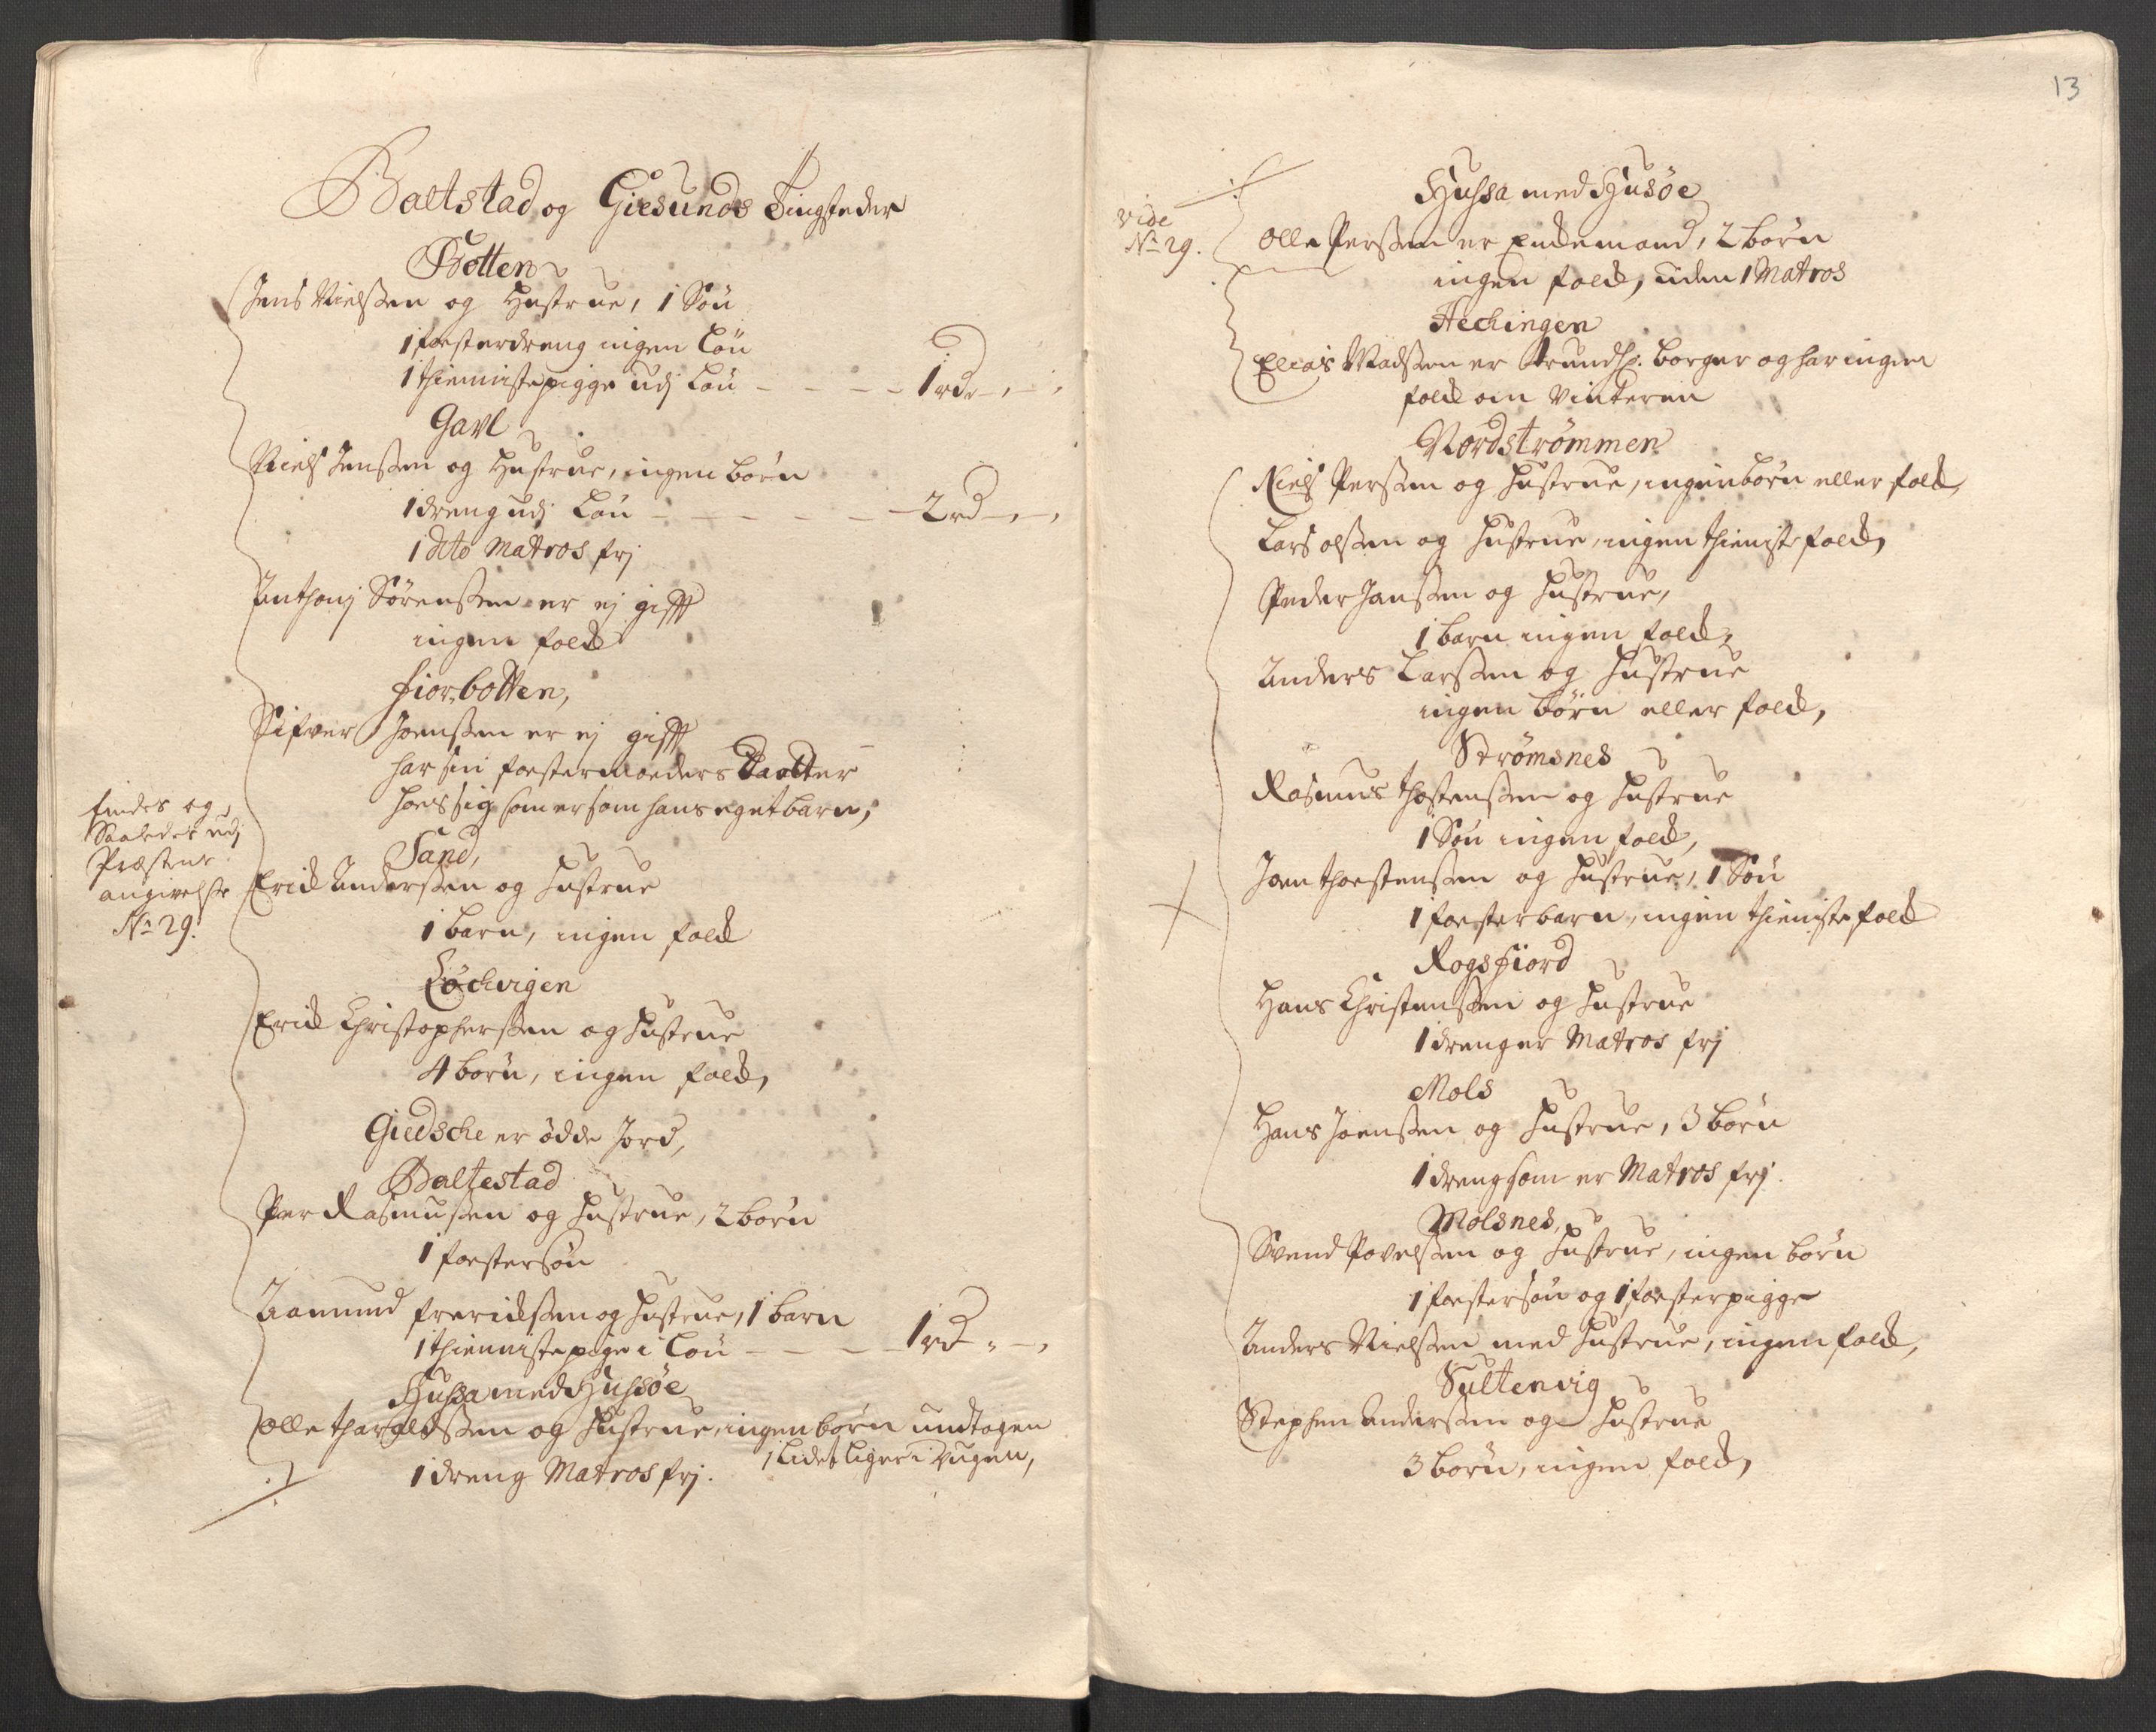 Baltstad og Giesunds Tingsteder
Botten
Jens Nielssen og Hustrue, 1 Søn
1 fosterdreng ingen Løn
1 thienniste pigge udj Løn - - - - 1 rd - , - ,
Gavl
Niels Jenssen og Hustrue, ingen børn
1 dreng udj Løn - - - - - 2 rd - , - ,
1 dito Matros frj
Anthonj Sørenssen er ej gifft
ingen folck
fiorbotten,
Sifver Joenssen er ej gifft
har sin fostermoders Daatter
hoes sig som er som hans eget barn,
findes og
Saaledes udj
Præstens
angivelsse
No 29.
Sand,
Erick Anderssen og Hustrue
1 barn, ingen folck
Løchvigen
Erick Christopherssen og Hustrue
4 børn, ingen folck,
Giedsche er ødde Jord,
Baltestad
Per Rasmussen og Hustrue, 2 børn
1 fostersøn
Aamund frerickssen og Hustrue, 1 barn
1 thienniste pige i Løn - - - - 1 rd - , - ,
Hussa med Hussøe
Olle tharaldssen og Hustrue, ingen børn undtagen
1 lidet liger i Vugen,
1 dreng Matros frj.
13
Hussa med Husøe
vide
No 29.
Olle Perssen er Enckemand, 2 børn
ingen folck, uden 1 Matros
Hechingen
Elias Madssen er trundhs: borger og har ingen
folck om Vinteren
Nordstrømmen
Niels Perssen og Hustrue, ingen børn eller folck,
Lars olssen og Hustrue, ingen thieniste folck,
Peder Janssen og Hustrue,
1 barn ingen folck,
Anders Larssen og Hustrue
ingen børn eller folck,
Strømsnes
Rasmus thostenssen og Hustrue
1 Søn ingen folck,
Joen thorstenssen og Hustrue, 1 Søn
1 fosterbarn, ingen thieniste folck
Rogsfiord
Hans Christenssen og Hustrue
1 dreng er Matros frj
Mols
Hans Joenssen og Hustrue, 3 børn
1 dreng som er Matros frj.
Molsnes,
Svend Povelssen og Hustrue, ingen børn
1 fostersøn og 1 fosterpigge
Anders Nielssen med Hustrue, ingen folck,
Sultenvig
Stephen Anderssen og Hustrue
3 børn, ingen folck,